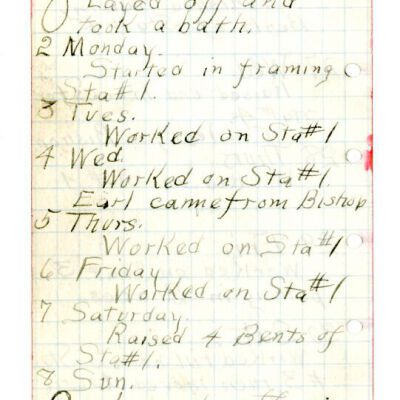 Layed off and
took a bath.
2 Monday.
Started in framing
Sta#1.
3 Tues.
Worked on Sta#1
4 Wed.
Worked on Sta#1.
Earl camefrom Bishop
5 Thurs.
Worked on Sta#1
6 Friday
Worked on Sta#1
7 Saturday.
Raised 4 Bents of
Sta#1.
8 Sun.